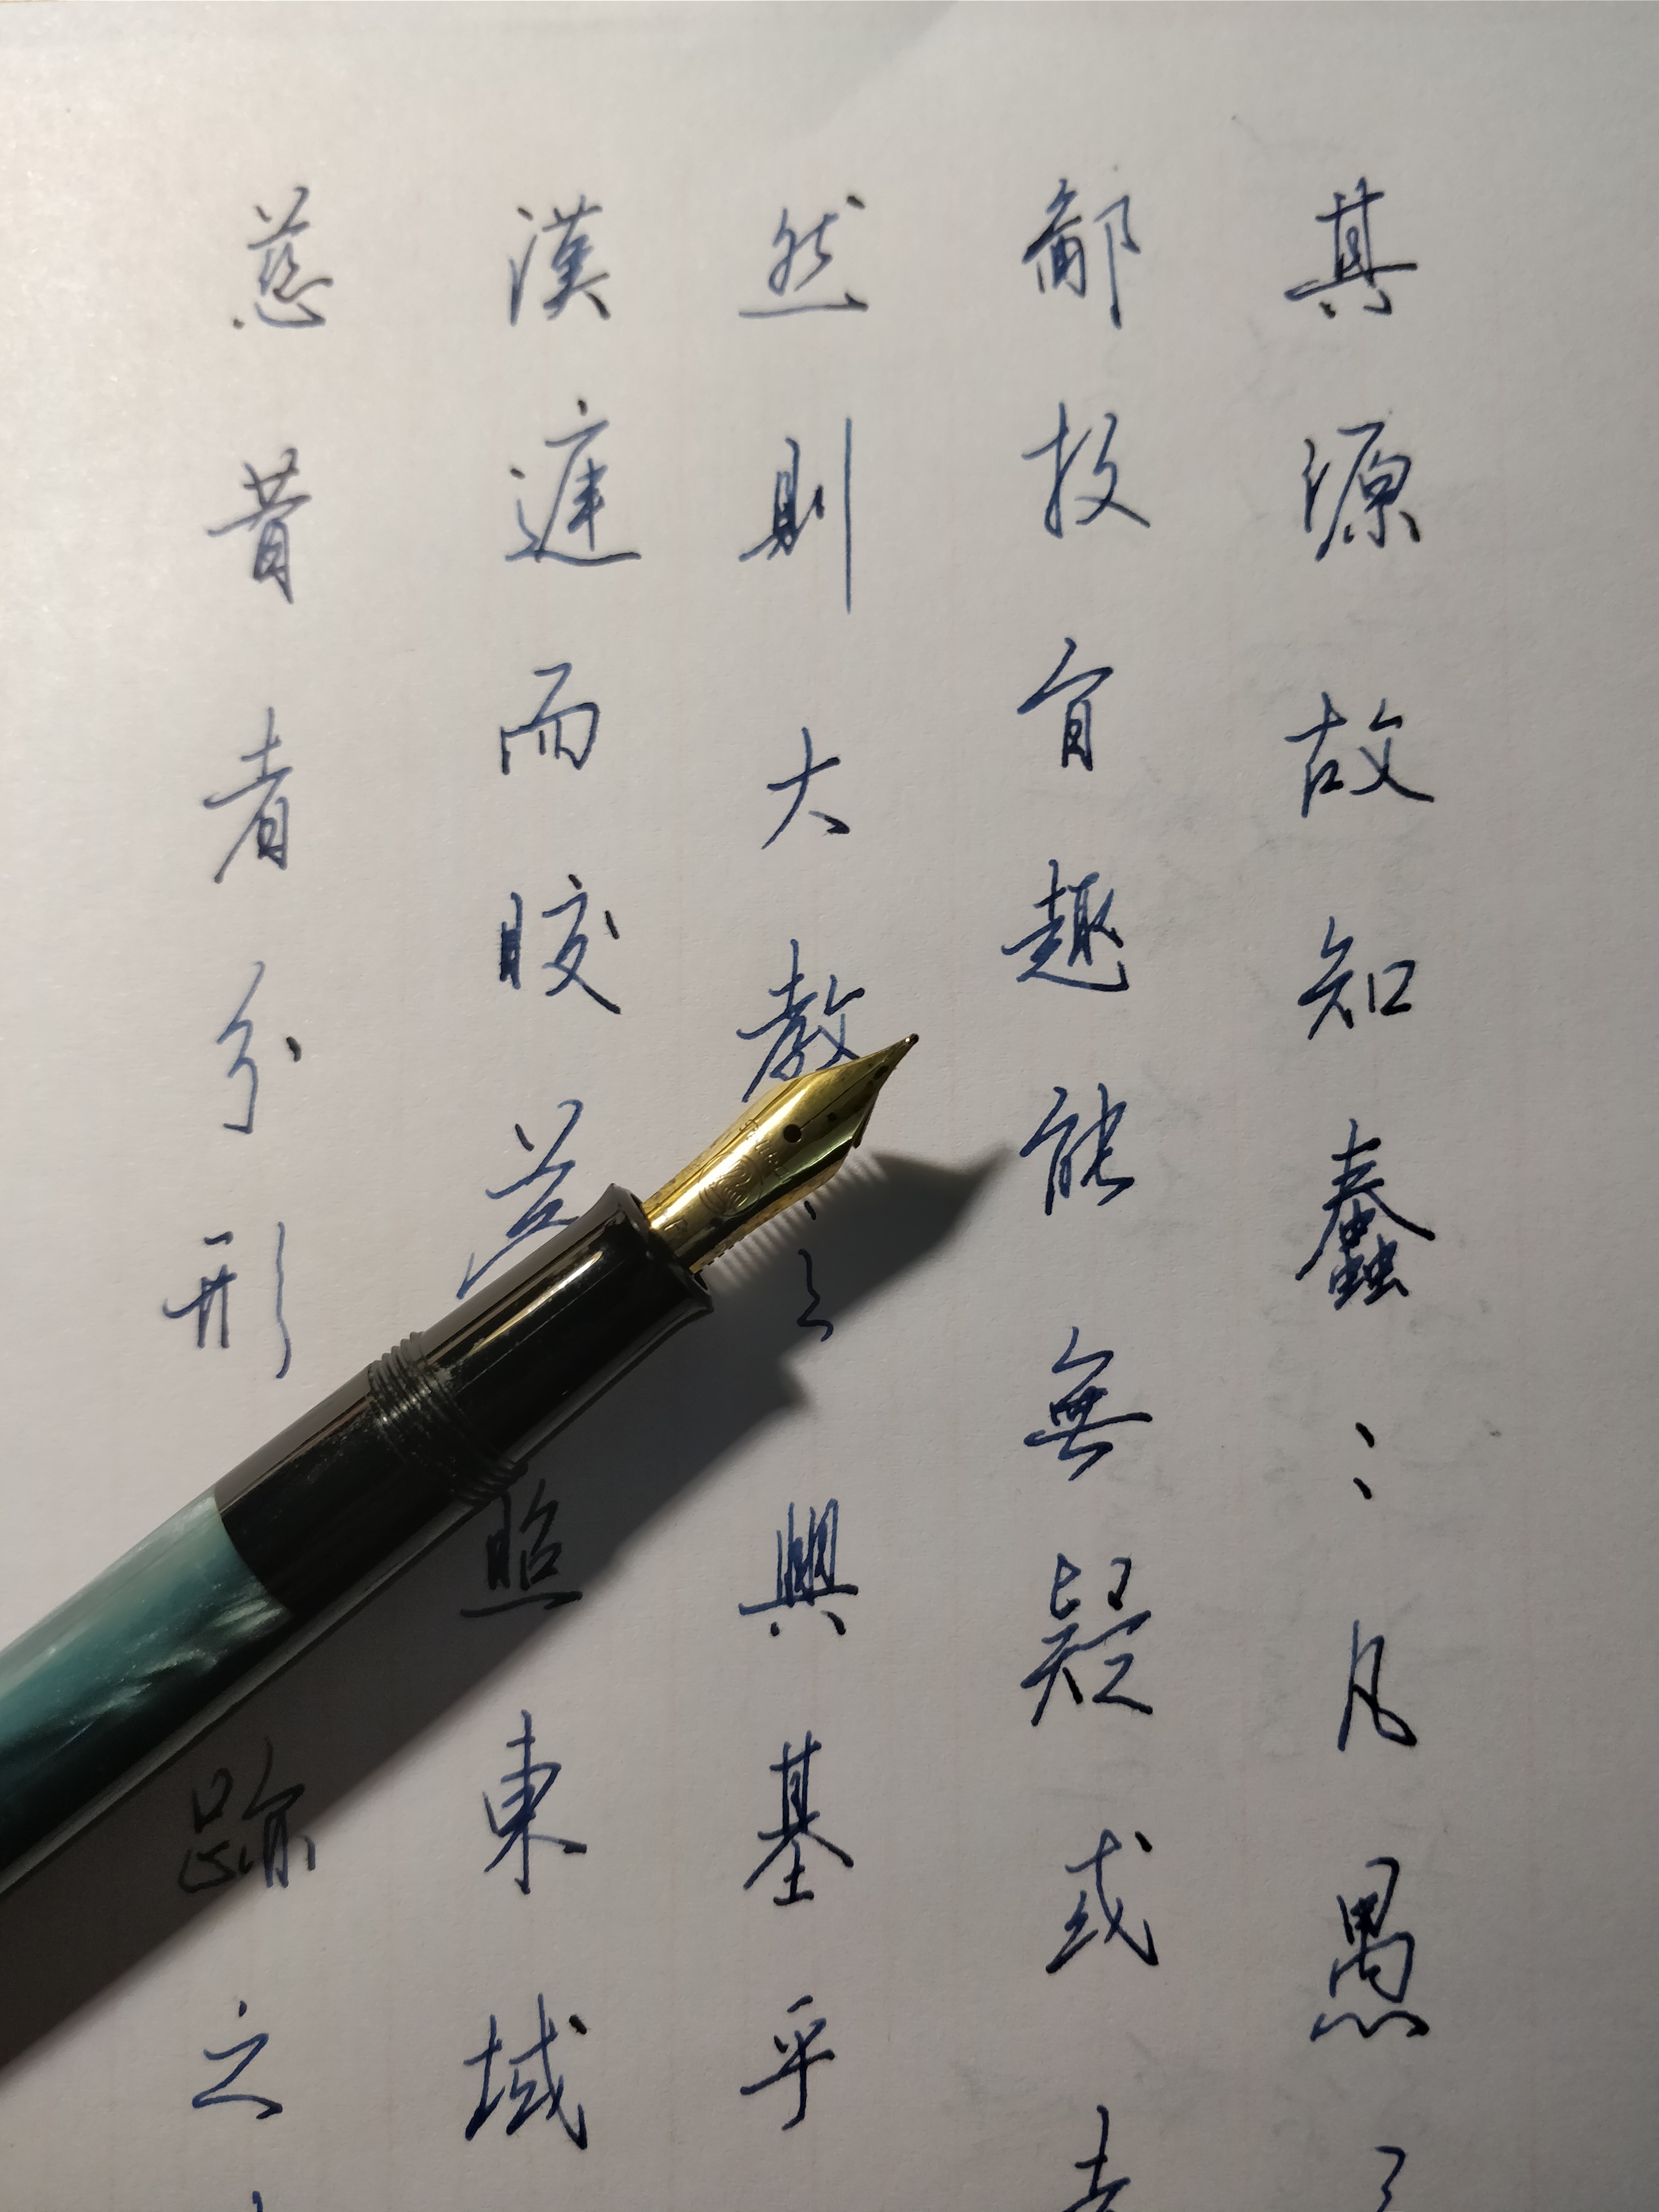 其源故知蠢〻凡愚
鄙投旨趣能無疑或
然則大教之興基乎
漢遲而皎 照東域
慈昔者分形 跡之